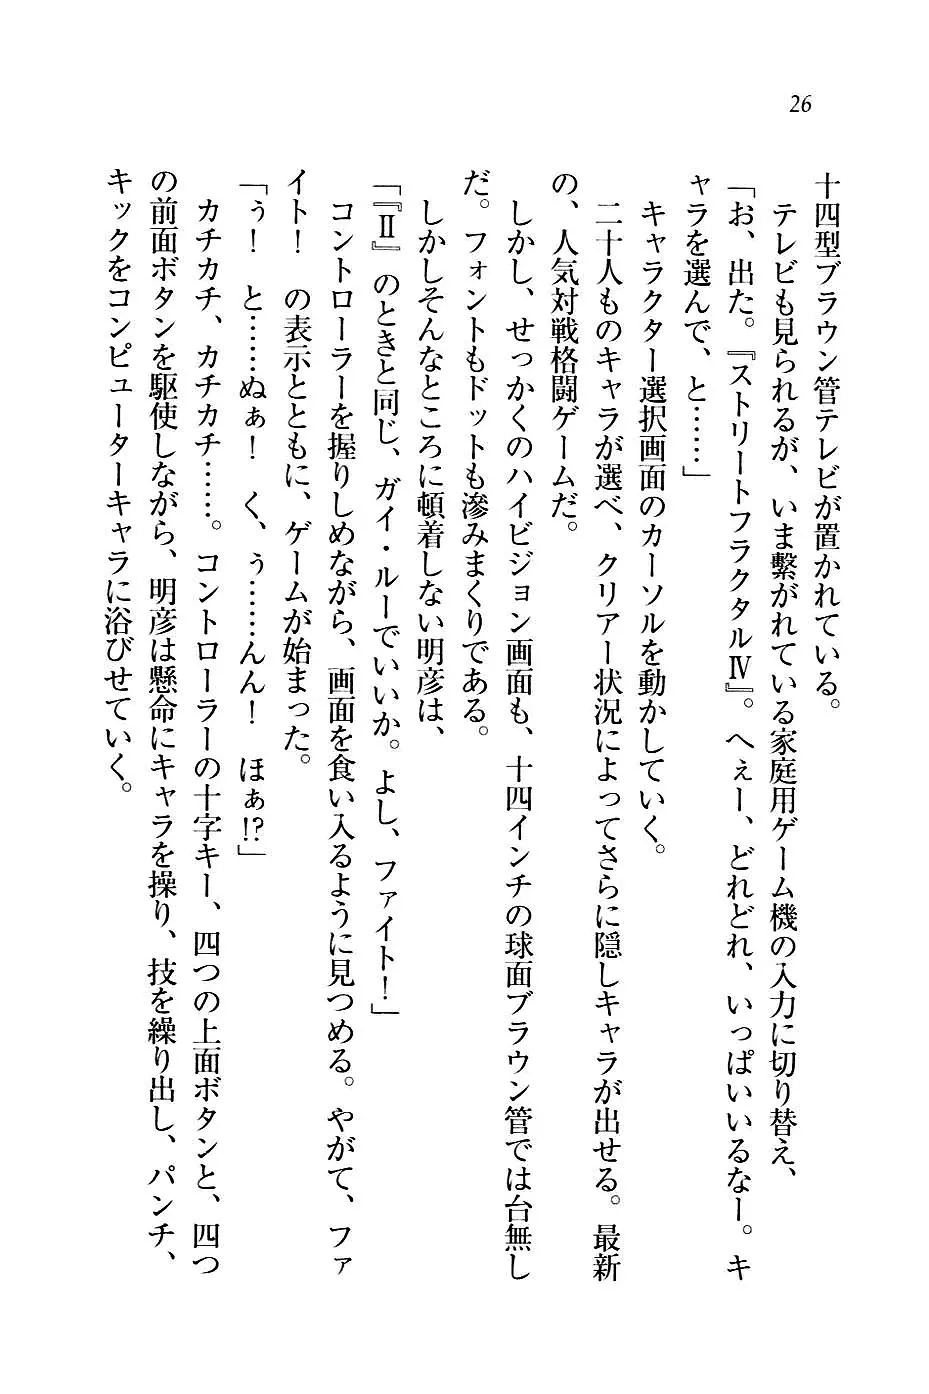 26
十四型ブラウン管テレビが置かれている。
テレビも見られるが、いま繋がれている家庭用ゲーム機の入力に切り替え、
「お、出た。『ストリートフラクタルⅣ』。へぇー、どれどれ、いっぱいいるなー。キ
ャラを選んで、と……」
キャラクター選択画面のカーソルを動かしていく。
二十人ものキャラが選べ、クリアー状況によってさらに隠しキャラが出せる。最新
の、人気対戦格闘ゲームだ。
しかし、せっかくのハイビジョン画面も、十四インチの球面ブラウン管では台無し
だ。フォントもドットも滲みまくりである。
しかしそんなところに頓着しない明彦は、
「『Ⅱ』のときと同じ、ガイ・ルーでいいか。よし、ファイト！」
コントローラーを握りしめながら、画面を食い入るように見つめる。やがて、ファ
イト！　の表示とともに、ゲームが始まった。
「ぅ！　と……ぬぁ！　く、ぅ……んん！　ほぁ!?」
カチカチ、カチカチ……。コントローラーの十字キー、四つの上面ボタンと、四つ
の前面ボタンを駆使しながら、明彦は懸命にキャラを操り、技を繰り出し、パンチ、
キックをコンピューターキャラに浴びせていく。